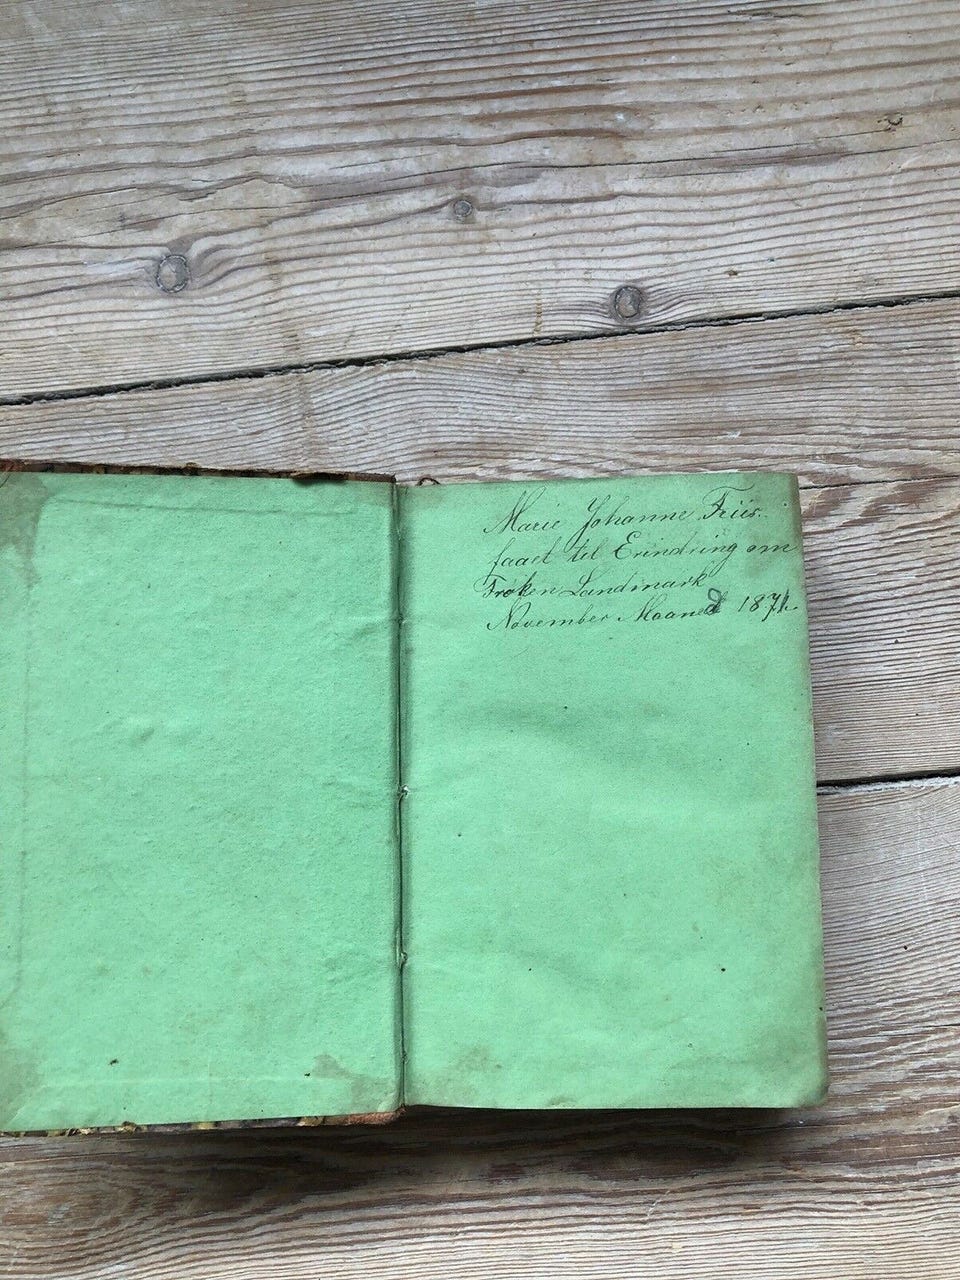 Marie Johanne Friis.
faaet til Erindring om
Frøken Landmark
November Maaned 1871.